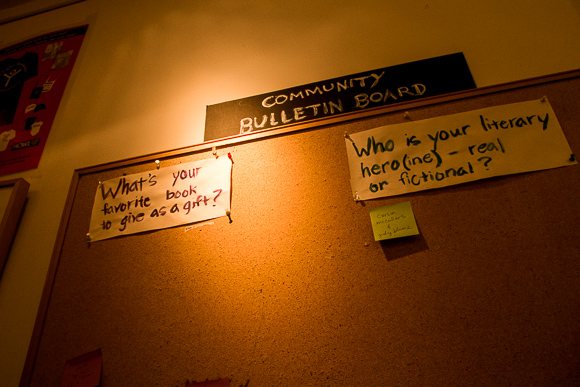 COMMUNITY
BULLETIN BOARD
What's your
favorite book
to give as a gift?
Who is your literary
hero(ine) – real
or fictional?